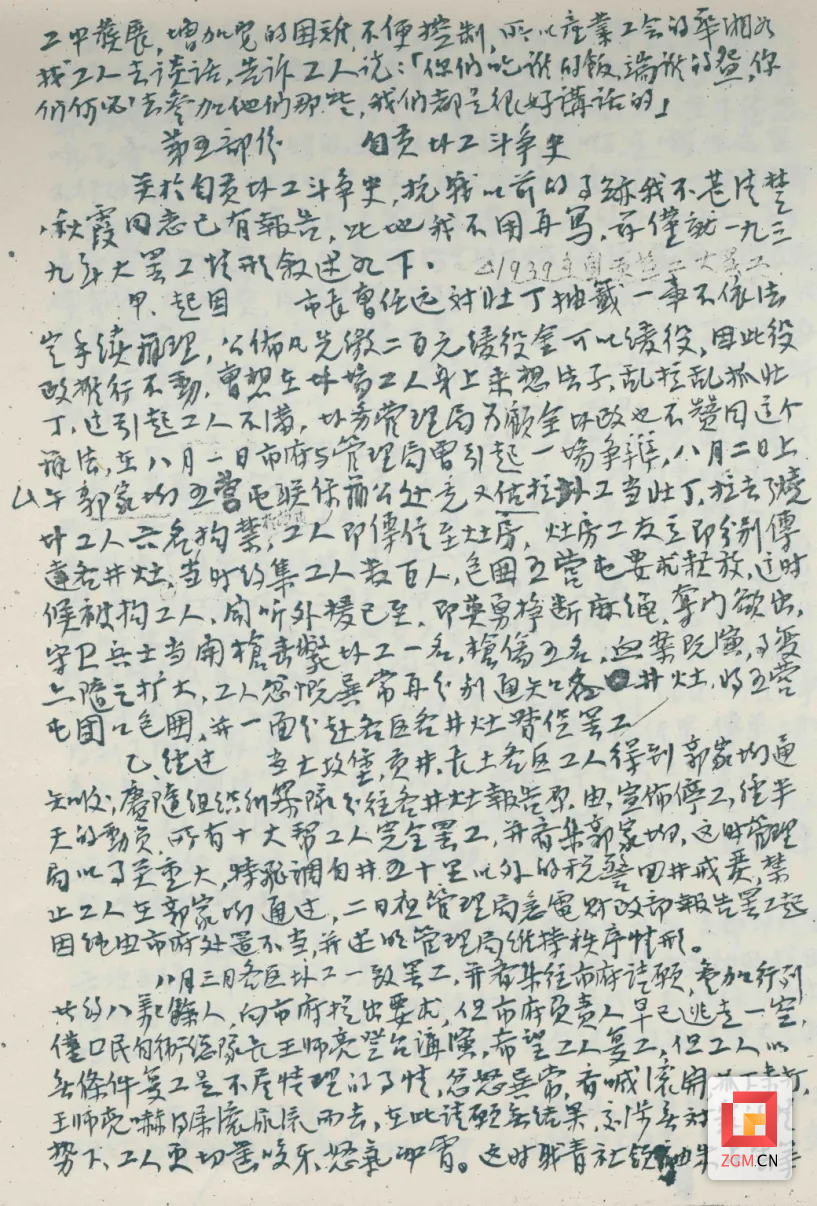 工甲發展，增加党的困难，不便控制，所以產業工会的
找工人去谈话，告诉工人说：「你们吃谁的飯，端谁的盌，你
们何必去參加他们那些，我们都是很好講话的」
第五部份 自贡圤工斗争史
关於自贡圤工斗争史，抗战以前的事跡我不甚清楚
，秋霞同志已有報告，此地我不用再写，兹僅就一九三
九年大罢工情形叙述如下。 △1939年自贡盐工大罢工
甲、起因 市长曹任远对壮丁抽籤一事不依法
定手续辦理，公佈凡先缴二百元缓役金可以缓役，因此役
政推行不動，曹想在圤場工人身上来想法子，乱拉乱抓壮
丁，这引起工人不满，圤务管理局为顧全圤政也不赞同这个
辦法，在八月一日市府与管理局曾引起一場争論，八月二日上
午郭家坳五营屯联保辦公处竟又估拉圤工当壮丁，拉去了燒
圤工人六名拘禁，工人即傳信至灶房，灶房工友立即分别傳
達各井灶，当时约集工人数百人，包围五营屯要求釋放，这时
候被拘工人，闻听外援已至，即英勇掙断麻绳，夺门欲出，
守卫兵士当開槍击斃圤工一名，槍傷五名，血案既演，事变
亦隨之扩大，工人忿慨異常再分别通知各井灶，將五营
屯團口包围，并一面分赴各区各井灶督促罢工
乙、经过 当大坟堡，贡井，长土各区工人得到郭家坳通
知後，賡隨组织纠察隊分往各井灶報告原由，宣佈停工，经半
天的動员，所有十大帮工人完全罢工，并齊集郭家坳，这时管理
局以事关重大，特飛调自井五十里以外的税警回井戒嚴，禁
止工人在郭家坳通过，二日夜管理局急電财政部報告罢工起
因純由市府处置不当，并述明管理局維持秩序情形。
八月三日各区圤工一致罢工，并齊集往市府請願，參加行列
共约八萬餘人，向市府提出要求，但市府负责人早已逃走一空，
僅口民自衛總隊长王师亮登台講演，希望工人复工，但工人以
無條件复工是不尽情理的事情，忿怒異常，齊喊滚開
王师亮嚇得屎滚尿流而去，在此請願無结果，交涉無对
势下，工人更切齒咬牙，怒氣冲霄。这时戰青社
ZGM.CN